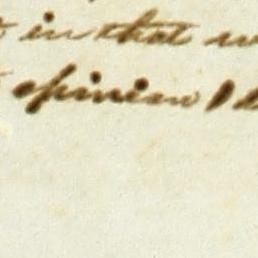 in that
opinion I